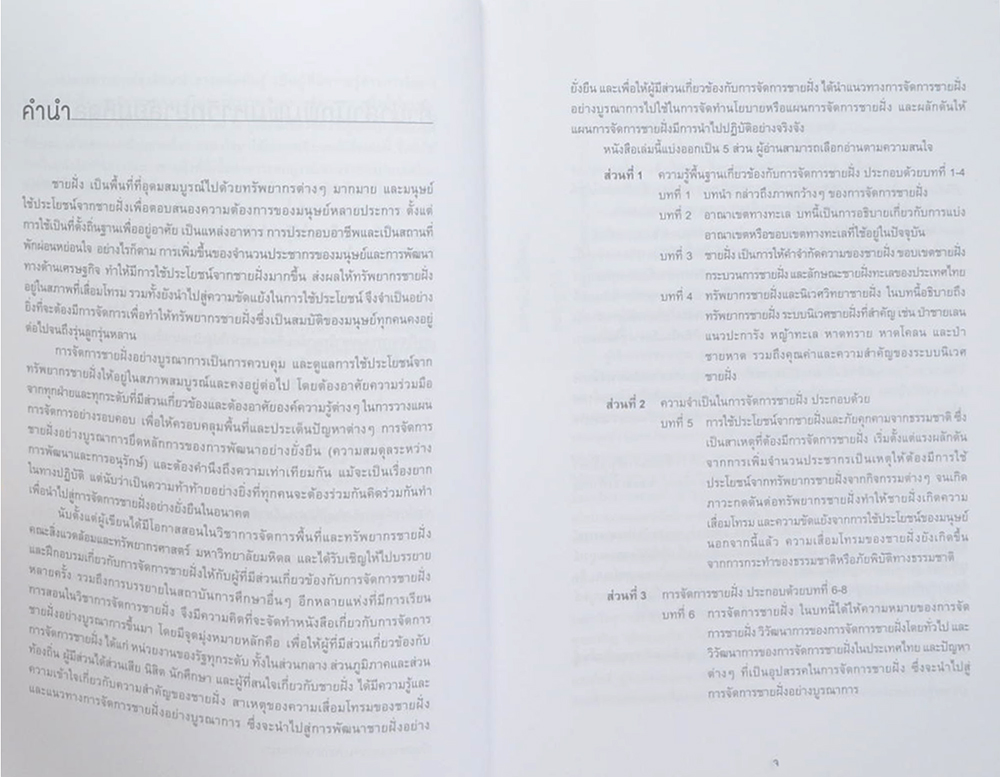 คำนำ
ชายฝั่ง เป็นพื้นที่ที่อุดมสมบูรณ์ไปด้วยทรัพยากรต่างๆ มากมาย และมนุษย์
ใช้ประโยชน์จากชายฝั่งเพื่อตอบสนองความต้องการของมนุษย์หลายประการ ตั้งแต่
การใช้เป็นที่ตั้งถิ่นฐานเพื่ออยู่อาศัย เป็นแหล่งอาหาร การประกอบอาชีพและเป็นสถานที่
พักผ่อนหย่อนใจ อย่างไรก็ตาม การเพิ่มขึ้นของจำนวนประชากรของมนุษย์และการพัฒนา
ทางด้านเศรษฐกิจ ทำให้มีการใช้ประโยชน์จากชายฝั่งมากขึ้น ส่งผลให้ทรัพยากรชายฝั่ง
อยู่ในสภาพที่เสื่อมโทรม รวมทั้งยังนำไปสู่ความขัดแย้งในการใช้ประโยชน์ จึงจำเป็นอย่าง
ยิ่งที่จะต้องมีการจัดการเพื่อทำให้ทรัพยากรชายฝั่งซึ่งเป็นสมบัติของมนุษย์ทุกคนคงอยู่
ต่อไปจนถึงรุ่นลูกรุ่นหลาน
การจัดการชายฝั่งอย่างบูรณาการเป็นการควบคุม และดูแลการใช้ประโยชน์จาก
ทรัพยากรชายฝั่งให้อยู่ในสภาพสมบูรณ์และคงอยู่ต่อไป โดยต้องอาศัยความร่วมมือ
จากทุกฝ่ายและทุกระดับที่มีส่วนเกี่ยวข้องและต้องอาศัยองค์ความรู้ต่างๆ ในการวางแผน
การจัดการอย่างรอบคอบ เพื่อให้ครอบคลุมพื้นที่และประเด็นปัญหาต่างๆ การจัดการ
ชายฝั่งอย่างบูรณาการยึดหลักการของการพัฒนาอย่างยั่งยืน (ความสมดุลระหว่าง
การพัฒนาและการอนุรักษ์) และต้องคำนึงถึงความเท่าเทียมกัน แม้จะเป็นเรื่องยาก
ในทางปฏิบัติ แต่นับว่าเป็นความท้าทายอย่างยิ่งที่ทุกคนจะต้องร่วมกันคิดร่วมกันทำ
เพื่อนำไปสู่การจัดการชายฝั่งอย่างยั่งยืนในอนาคต
นับตั้งแต่ผู้เขียนได้มีโอกาสสอนในวิชาการจัดการพื้นที่และทรัพยากรชายฝั่ง
คณะสิ่งแวดล้อมและทรัพยากรศาสตร์ มหาวิทยาลัยมหิดล และได้รับเชิญให้ไปบรรยาย
และฝึกอบรมเกี่ยวกับการจัดการชายฝั่งให้กับผู้ที่มีส่วนเกี่ยวข้องกับการจัดการชายฝั่ง
หลายครั้ง รวมถึงการบรรยายในสถาบันการศึกษาอื่นๆ อีกหลายแห่งที่มีการเรียน
การสอนในวิชาการจัดการชายฝั่ง จึงมีความคิดที่จะจัดทำหนังสือเกี่ยวกับการจัดการ
ชายฝั่งอย่างบูรณาการขึ้นมา โดยมีจุดมุ่งหมายหลักคือ เพื่อให้ผู้ที่มีส่วนเกี่ยวข้องกับ
การจัดการชายฝั่ง ได้แก่ หน่วยงานของรัฐทุกระดับ ทั้งในส่วนกลาง ส่วนภูมิภาคและส่วน
ท้องถิ่น ผู้มีส่วนได้ส่วนเสีย นิสิต นักศึกษา และผู้ที่สนใจเกี่ยวกับชายฝั่ง ได้มีความรู้และ
ความเข้าใจเกี่ยวกับความสำคัญของชายฝั่ง สาเหตุของความเสื่อมโทรมของชายฝั่ง
และแนวทางการจัดการชายฝั่งอย่างบูรณาการ ซึ่งจะนำไปสู่การพัฒนาชายฝั่งอย่าง
ยั่งยืน และเพื่อให้ผู้มีส่วนเกี่ยวข้องกับการจัดการชายฝั่ง ได้นำแนวทางการจัดการชายฝั่ง
อย่างบูรณาการไปใช้ในการจัดทำนโยบายหรือแผนการจัดการชายฝั่ง และผลักดันให้
แผนการจัดการชายฝั่งมีการนำไปปฏิบัติอย่างจริงจัง
หนังสือเล่มนี้แบ่งออกเป็น 5 ส่วน ผู้อ่านสามารถเลือกอ่านตามความสนใจ
ส่วนที่ 1 ความรู้พื้นฐานเกี่ยวกับการจัดการชายฝั่ง ประกอบด้วยบทที่ 1-4
บทที่ 1 บทนำ กล่าวถึงภาพกว้างๆ ของการจัดการชายฝั่ง
บทที่ 2 อาณาเขตทางทะเล บทนี้เป็นการอธิบายเกี่ยวกับการแบ่ง
อาณาเขตหรือขอบเขตทางทะเลที่ใช้อยู่ในปัจจุบัน
บทที่ 3 ชายฝั่ง เป็นการให้คำจำกัดความของชายฝั่ง ขอบเขตชายฝั่ง
กระบวนการชายฝั่ง และลักษณะชายฝั่งทะเลของประเทศไทย
บทที่ 4 ทรัพยากรชายฝั่งและนิเวศวิทยาชายฝั่ง ในบทนี้อธิบายถึง
ทรัพยากรชายฝั่ง ระบบนิเวศชายฝั่งที่สำคัญ เช่น ป่าชายเลน
แนวปะการัง หญ้าทะเล หาดทราย หาดโคลน และป่า
ชายหาด รวมถึงคุณค่าและความสำคัญของระบบนิเวศ
ชายฝั่ง
ส่วนที่ 2 ความจำเป็นในการจัดการชายฝั่ง ประกอบด้วย
บทที่ 5 การใช้ประโยชน์จากชายฝั่งและภัยคุกคามจากธรรมชาติ ซึ่ง
เป็นสาเหตุที่ต้องมีการจัดการชายฝั่ง เริ่มตั้งแต่แรงผลักดัน
จากการเพิ่มจำนวนประชากรเป็นเหตุให้ต้องมีการใช้
ประโยชน์จากทรัพยากรชายฝั่งจากกิจกรรมต่างๆ จนเกิด
ภาวะกดดันต่อทรัพยากรชายฝั่งทำให้ชายฝั่งเกิดความ
เสื่อมโทรม และความขัดแย้งจากการใช้ประโยชน์ของมนุษย์
นอกจากนี้แล้ว ความเสื่อมโทรมของชายฝั่งยังเกิดขึ้น
จากการกระทำของธรรมชาติหรือภัยพิบัติทางธรรมชาติ
ส่วนที่ 3 การจัดการชายฝั่ง ประกอบด้วยบทที่ 6-8
บทที่ 6 การจัดการชายฝั่ง ในบทนี้ได้ให้ความหมายของการจัด
การชายฝั่ง วิวัฒนาการของการจัดการชายฝั่งโดยทั่วไป และ
วิวัฒนาการของการจัดการชายฝั่งในประเทศไทย และปัญหา
ต่างๆ ที่เป็นอุปสรรคในการจัดการชายฝั่ง ซึ่งจะนำไปสู่
การจัดการชายฝั่งอย่างบูรณาการ